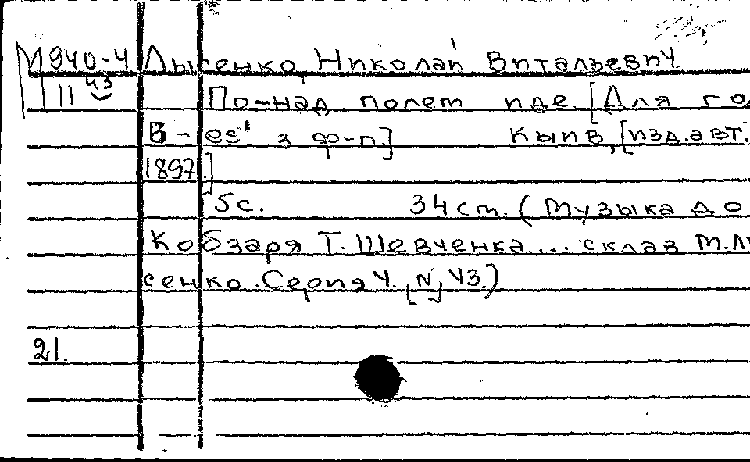 М940-4 Лысенко, Николай Витальевич
II 43 По-над полем иде. [Для го
В-es' з ф-п] Кыив, [изд. авт.
1897]
5с. 34 ст. (Музыка до
Кобзаря Т. Шевченка... склав М. Лы
сенко. Серия 4. [N, 43.)
21.